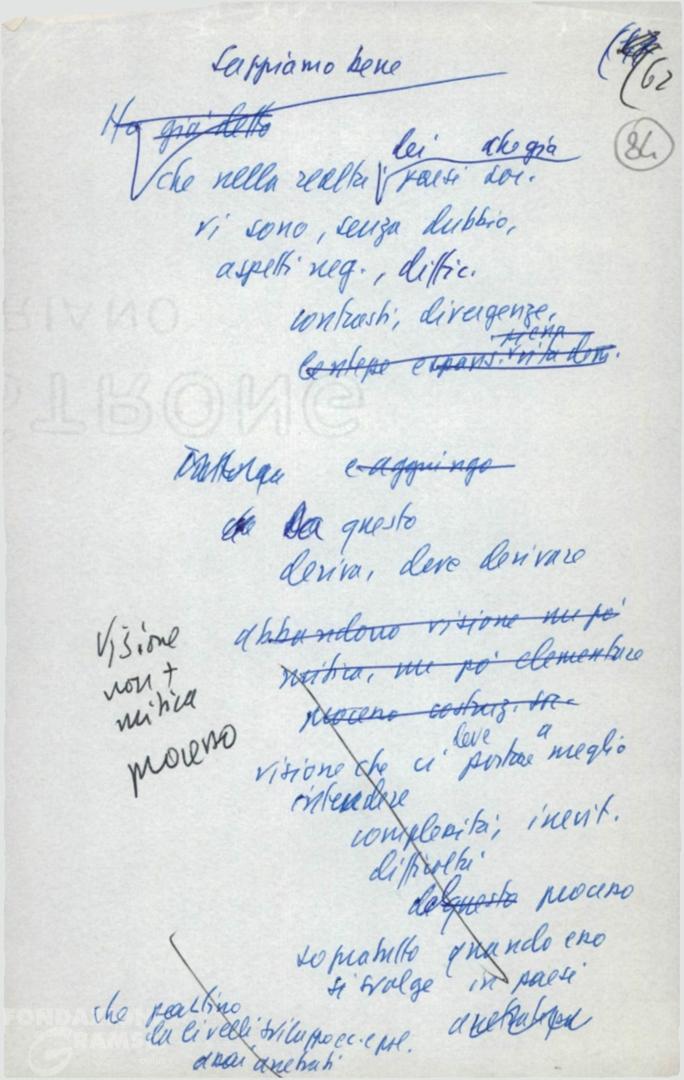 Sappiamo bene
(62
84
Ho già detto
dei che già
che nella realtà paesi soc.
vi sono, senza dubbio,
aspetti neg., diffic.
contrasti, divergenze,
piena
e espans. vita dem.
e aggiungo
Da questo
deriva, deve derivare
abbandono visione un po'
mitica, un po' elementare
processo costruz. soc.
Visione
non +
mitica
processo
deve a
visione che ci portare meglio
intendere
complessità, inevit.
difficoltà
del questo processo
sopratutto quando esso
si svolge in paesi
arretrati
che partino
da livelli sviluppo ec. e pol.
assai arretrati
FONDAZIONE
GRAMSCI